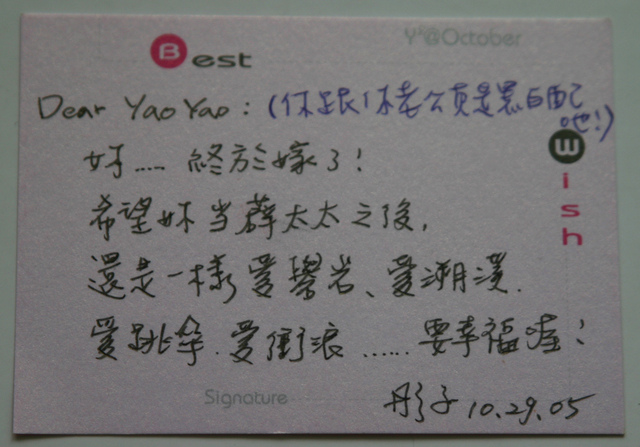 Y²@October
Best
Wish
Dear YaoYao: (你跟你老公真是黑白配
吧!)
好..... 終於嫁了!
希望妳當薛太太之後,
還是一樣愛攀岩、愛溯溪.
愛跳傘.愛衝浪......要幸福喔!
Signature
彤子 10.29.05